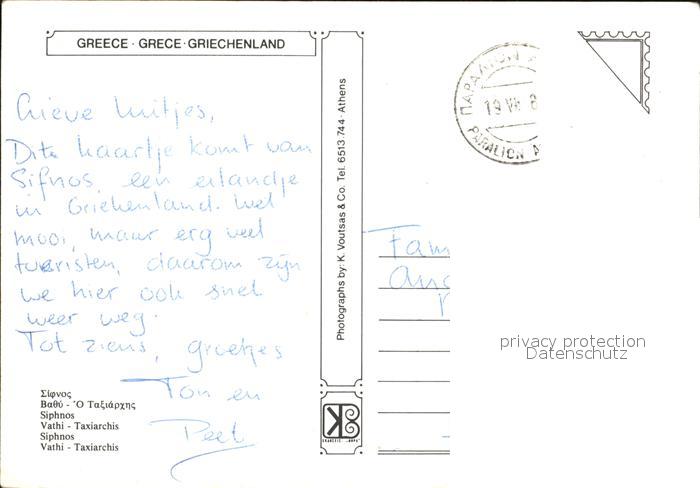 GREECE · GRECE · GRIECHENLAND
Lieve Mitjes,
Dit kaartje komt van
Sifnos, een eilandje
in Griekenland. Wel
mooi, maar erg veel
toeristen, daarom zijn
we hier ook snel
weer weg.
Tot ziens, groetjes
Ton en
Peet
Σίφνος
Βαθύ - Ὁ Ταξιάρχης
Siphnos
Vathi - Taxiarchis
Siphnos
Vathi - Taxiarchis
Photographs by: K. Voutsas & Co. Tel. 6513.744 · Athens
ΠΑΡΑΛΙΟΝ Α
19 VII 8
PARALION A
Fam
privacy protection
Datenschutz